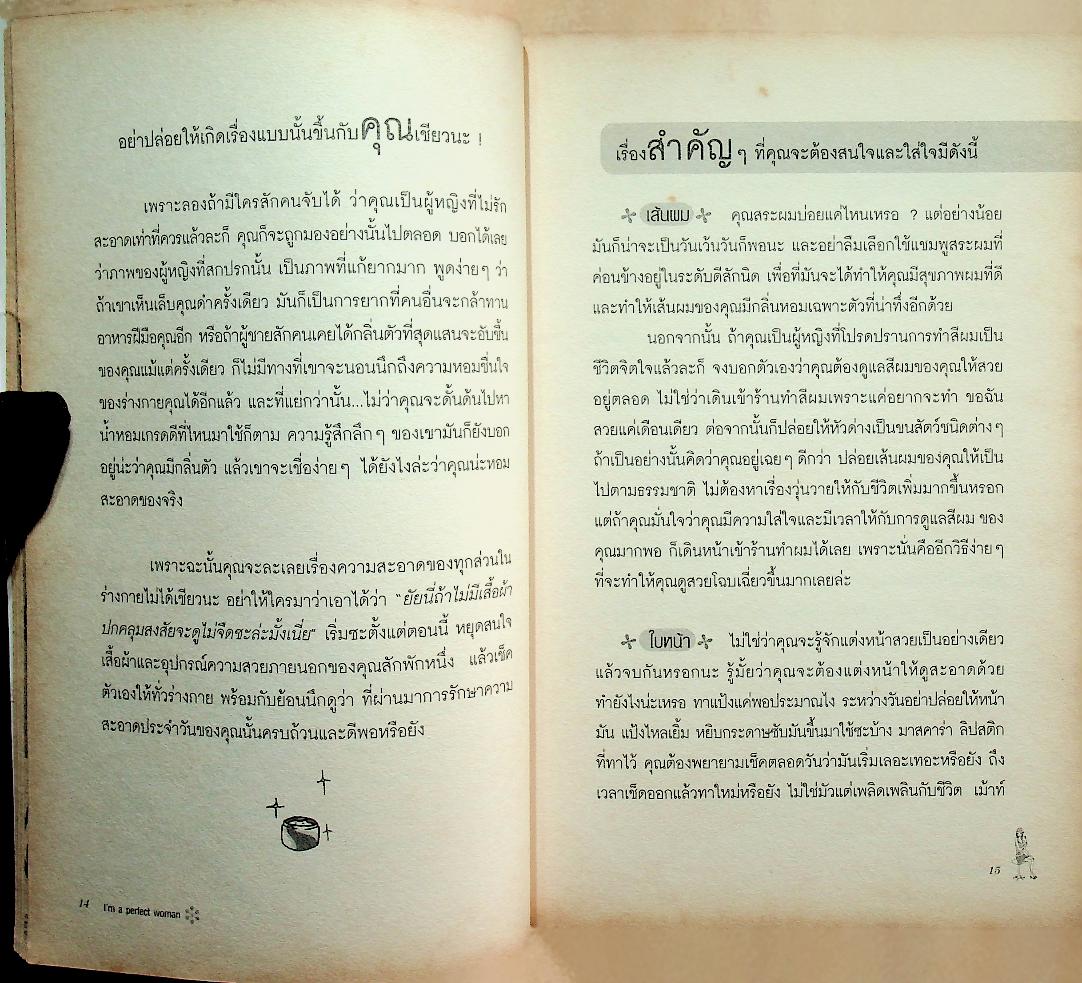 อย่าปล่อยให้เกิดเรื่องแบบนั้นขึ้นกับคุณเชียวนะ !
เพราะลองถ้ามีใครสักคนจับได้ ว่าคุณเป็นผู้หญิงที่ไม่รัก
สะอาดเท่าที่ควรแล้วละก็ คุณก็จะถูกมองอย่างนั้นไปตลอด บอกได้เลย
ว่าภาพของผู้หญิงที่สกปรกนั้น เป็นภาพที่แก้ยากมาก พูดง่ายๆ ว่า
ถ้าเขาเห็นเล็บคุณดำครั้งเดียว มันก็เป็นการยากที่คนอื่นจะกล้าทาน
อาหารฝีมือคุณอีก หรือถ้าผู้ชายสักคนเคยได้กลิ่นตัวที่สุดแสนจะอับชื้น
ของคุณแม้แต่ครั้งเดียว ก็ไม่มีทางที่เขาจะนอนนึกถึงความหอมชื่นใจ
ของร่างกายคุณได้อีกแล้ว และที่แย่กว่านั้น...ไม่ว่าคุณจะดั้นด้นไปหา
น้ำหอมเกรดดีที่ไหนมาใช้ก็ตาม ความรู้สึกลึกๆ ของเขามันก็ยังบอก
อยู่น่ะว่าคุณมีกลิ่นตัว แล้วเขาจะเชื่อง่ายๆ ได้ยังไงล่ะว่าคุณน่ะหอม
สะอาดของจริง
เพราะฉะนั้นคุณจะละเลยเรื่องความสะอาดของทุกส่วนใน
ร่างกายไม่ได้เชียวนะ อย่าให้ใครมาว่าเอาได้ว่า "ยัยนี่ถ้าไม่มีเสื้อผ้า
ปกคลุมสงสัยจะดูไม่จืดซะล่ะมั้งเนี่ย" เริ่มซะตั้งแต่ตอนนี้ หยุดสนใจ
เสื้อผ้าและอุปกรณ์ความสวยภายนอกของคุณสักพักหนึ่ง แล้วเช็ค
ตัวเองให้ทั่วร่างกาย พร้อมกับย้อนนึกดูว่า ที่ผ่านมาการรักษาความ
สะอาดประจำวันของคุณนั้นครบถ้วนและดีพอหรือยัง
14 I'm a perfect woman
เรื่องสำคัญๆ ที่คุณจะต้องสนใจและใส่ใจมีดังนี้
เส้นผม คุณสระผมบ่อยแค่ไหนเหรอ ? แต่อย่างน้อย
มันก็น่าจะเป็นวันเว้นวันก็พอนะ และอย่าลืมเลือกใช้แชมพูสระผมที่
ค่อนข้างอยู่ในระดับดีสักนิด เพื่อที่มันจะได้ทำให้คุณมีสุขภาพผมที่ดี
และทำให้เส้นผมของคุณมีกลิ่นหอมเฉพาะตัวที่น่าทึ่งอีกด้วย
นอกจากนั้น ถ้าคุณเป็นผู้หญิงที่โปรดปรานการทำสีผมเป็น
ชีวิตจิตใจแล้วละก็ จงบอกตัวเองว่าคุณต้องดูแลสีผมของคุณให้สวย
อยู่ตลอด ไม่ใช่ว่าเดินเข้าร้านทำสีผมเพราะแค่อยากจะทำ ขอฉัน
สวยแค่เดือนเดียว ต่อจากนั้นก็ปล่อยให้หัวด่างเป็นขนสัตว์ชนิดต่างๆ
ถ้าเป็นอย่างนั้นคิดว่าคุณอยู่เฉยๆ ดีกว่า ปล่อยเส้นผมของคุณให้เป็น
ไปตามธรรมชาติ ไม่ต้องหาเรื่องวุ่นวายให้กับชีวิตเพิ่มมากขึ้นหรอก
แต่ถ้าคุณมั่นใจว่าคุณมีความใส่ใจและมีเวลาให้กับการดูแลสีผม ของ
คุณมากพอ ก็เดินหน้าเข้าร้านทำผมได้เลย เพราะนั่นคืออีกวิธีง่ายๆ
ที่จะทำให้คุณดูสวยโฉบเฉี่ยวขึ้นมากเลยล่ะ
ใบหน้า ไม่ใช่ว่าคุณจะรู้จักแต่งหน้าสวยเป็นอย่างเดียว
แล้วจบกันหรอกนะ รู้มั้ยว่าคุณจะต้องแต่งหน้าให้ดูสะอาดด้วย
ทำยังไงน่ะเหรอ ทาแป้งแค่พอประมาณไง ระหว่างวันอย่าปล่อยให้หน้า
มัน แป้งไหลเยิ้ม หยิบกระดาษซับมันขึ้นมาใช้ซะบ้าง มาสคาร่า ลิปสติก
ที่ทาไว้ คุณต้องพยายามเช็คตลอดวันว่ามันเริ่มเลอะเทอะหรือยัง ถึง
เวลาเช็ดออกแล้วทาใหม่หรือยัง ไม่ใช่มัวแต่เพลิดเพลินกับชีวิต เม้าท์
15